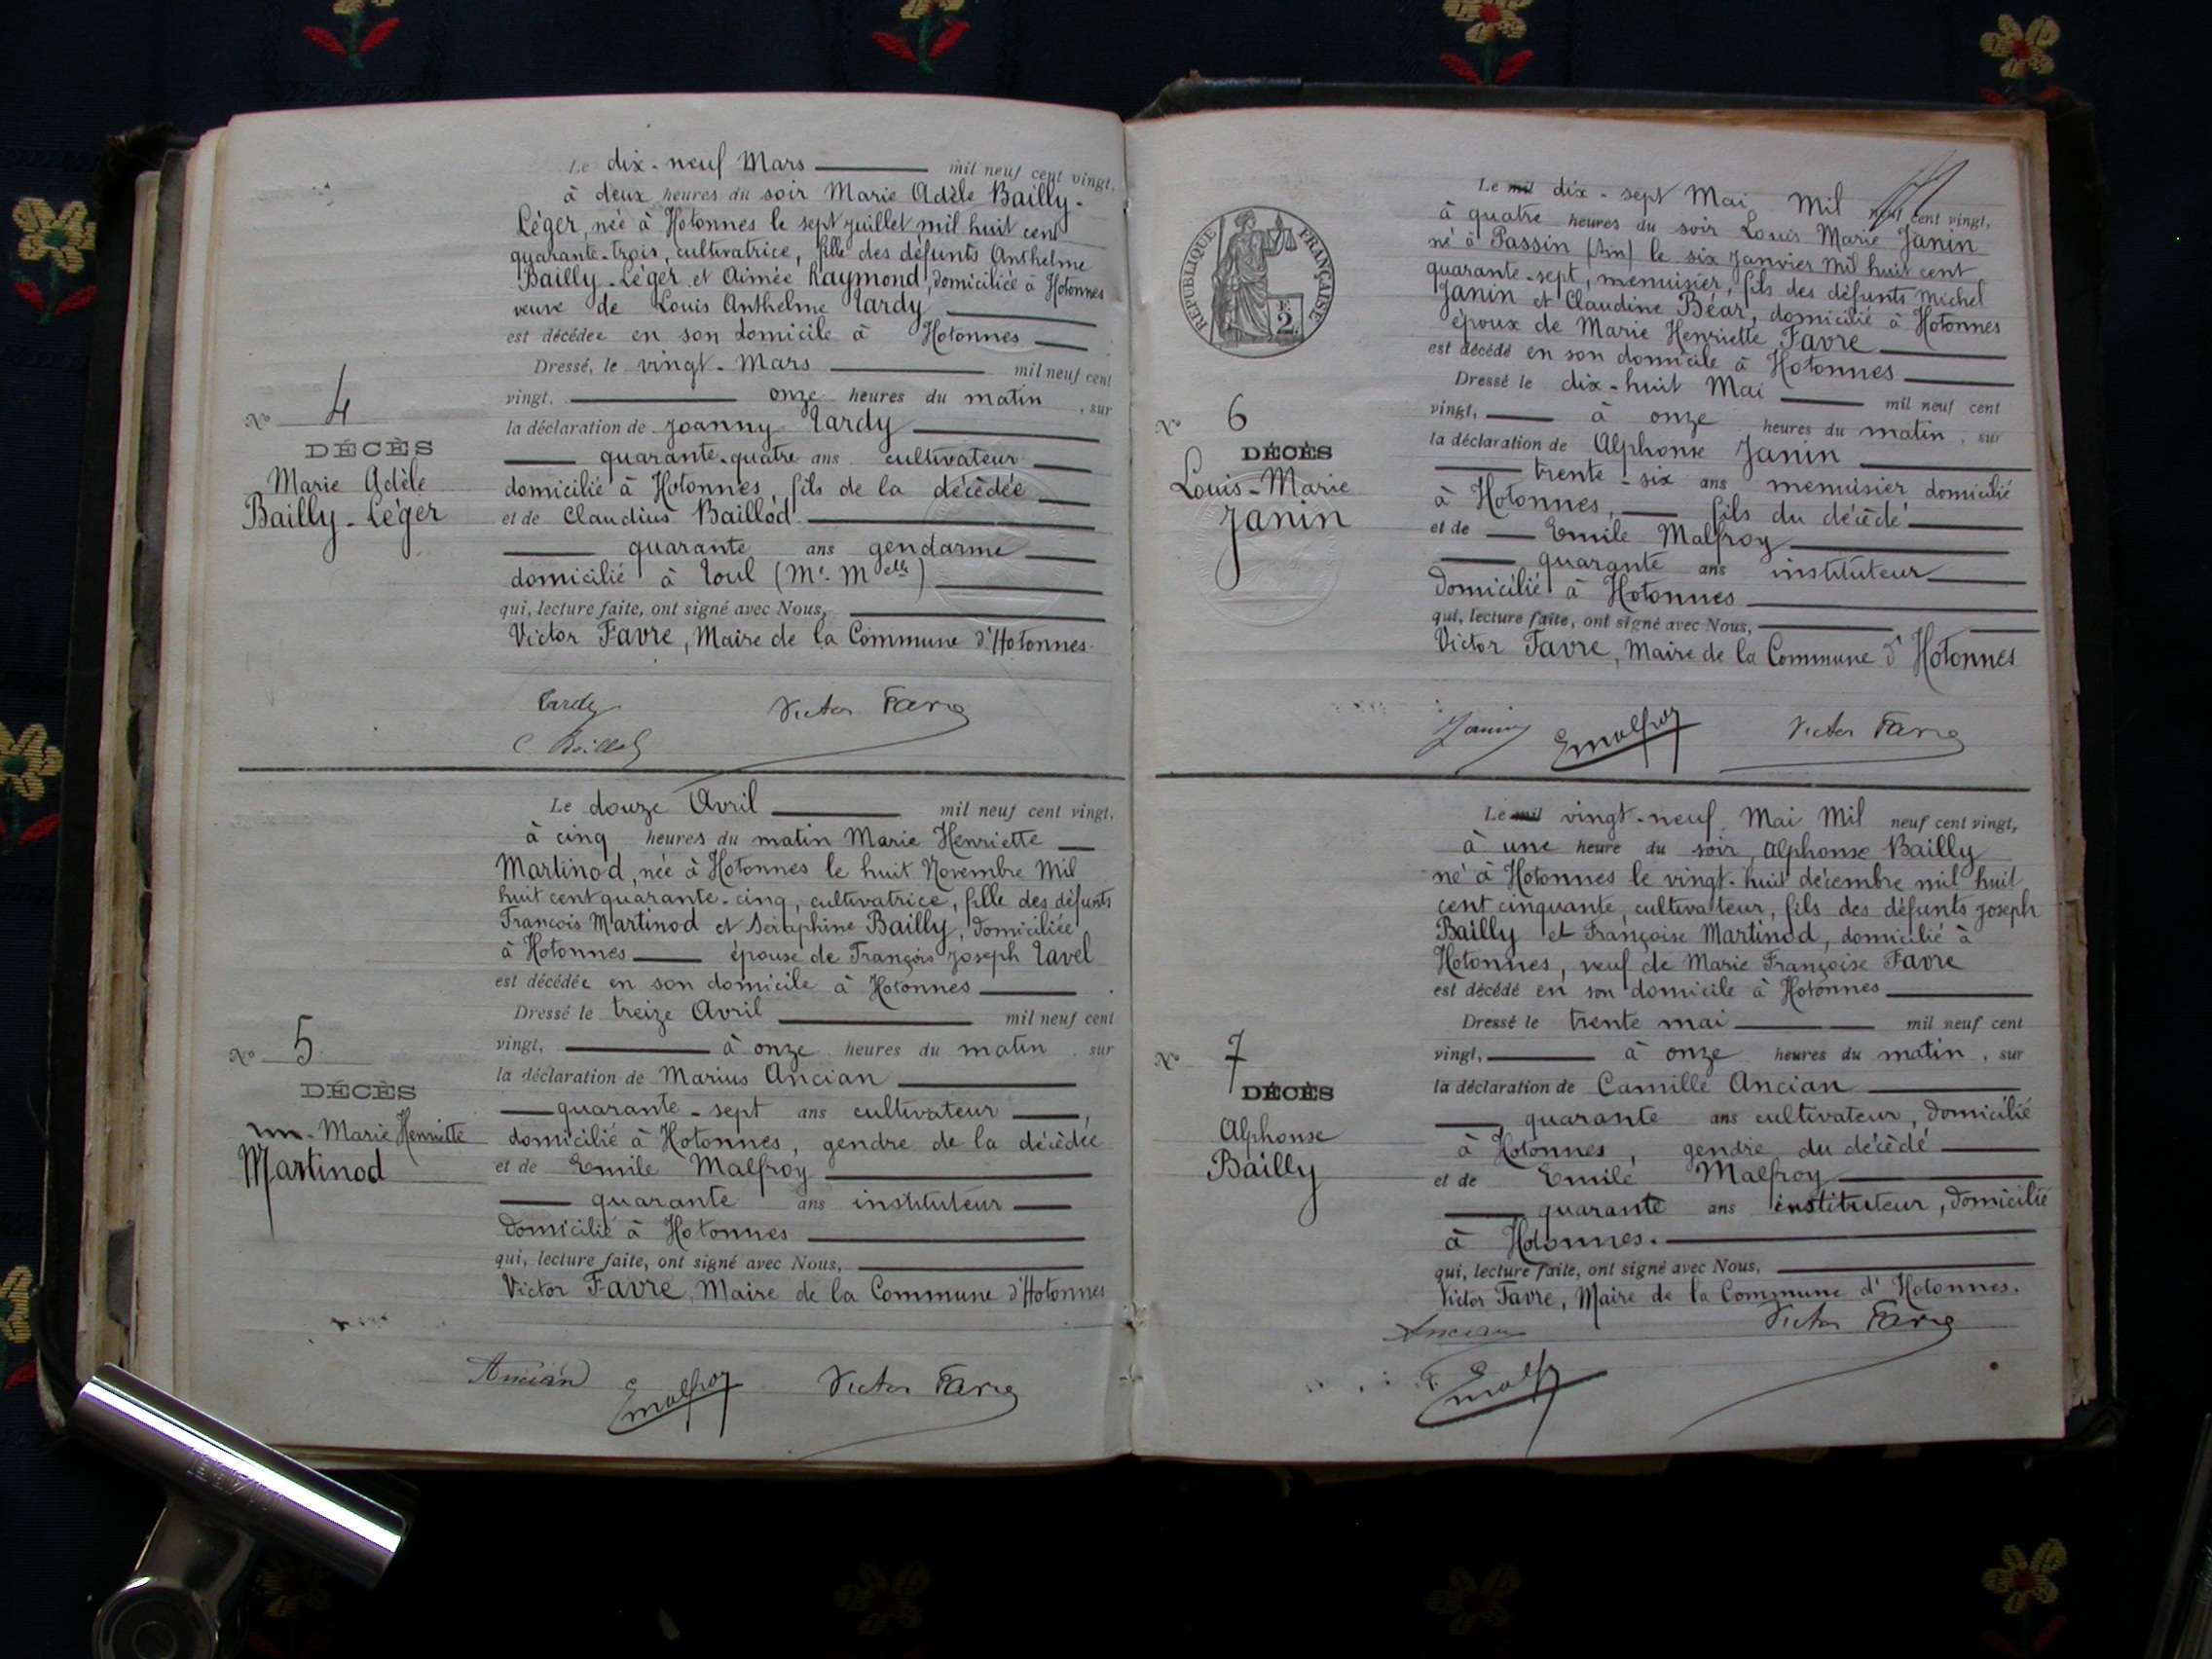 Le dix-neuf Mars mil neuf cent vingt,
à deux heures du soir Marie Adèle Bailly-
Léger, née à Hotonnes le sept juillet mil huit cent
quarante-trois, cultivatrice, fille des défunts Anthelme
Bailly-Léger et Aimée Raymond, domiciliée à Hotonnes
veuve de Louis Anthelme Tardy
est décédée en son domicile à Hotonnes
Dressé, le vingt-Mars mil neuf cent
vingt, onze heures du matin, sur
la déclaration de Joanny Tardy
quarante-quatre ans cultivateur
domicilié à Hotonnes, fils de la décédée
et de Claudius Baillod
quarante ans gendarme
domicilié à Toul (Mthe Melle)
qui, lecture faite, ont signé avec Nous,
Victor Favre, Maire de la Commune d'Hotonnes.
N° 4
DÉCÈS
Marie Adèle
Bailly-Léger
Tardy
Victor Favre
C Baillod
Le douze Avril mil neuf cent vingt,
à cinq heures du matin Marie Henriette
Martinod, née à Hotonnes le huit Novembre Mil
huit cent quarante-cinq, cultivatrice, fille des défunts
François Martinod et Séraphine Bailly, domiciliée
à Hotonnes épouse de François Joseph Tavel
est décédée en son domicile à Hotonnes
Dressé le treize Avril mil neuf cent
vingt, à onze heures du matin, sur
la déclaration de Marius Ancian
quarante-sept ans cultivateur,
domicilié à Hotonnes, gendre de la décédée
et de Emile Malfroy
quarante ans instituteur
domicilié à Hotonnes
qui, lecture faite, ont signé avec Nous,
Victor Favre, Maire de la Commune d'Hotonnes
N° 5
DÉCÈS
Marie Henriette
Martinod
Ancian
Emalfroy
Victor Favre
REPUBLIQUE FRANÇAISE
2F
Le mil dix-sept Mai Mil neuf cent vingt,
à quatre heures du soir Louis Marie Janin
né à Passin (Ain) le six Janvier Mil huit cent
quarante-sept, menuisier, fils des défunts Michel
Janin et Claudine Béar, domicilié à Hotonnes
époux de Marie Henriette Favre
est décédé en son domicile à Hotonnes
Dressé le dix-huit Mai mil neuf cent
vingt, à onze heures du matin, sur
la déclaration de Alphonse Janin
trente-six ans menuisier domicilié
à Hotonnes, fils du décédé
et de Emile Malfroy
quarante ans instituteur
domicilié à Hotonnes
qui, lecture faite, ont signé avec Nous,
Victor Favre, Maire de la Commune d'Hotonnes
N° 6
DÉCÈS
Louis-Marie
Janin
Janin
Emalfroy
Victor Favre
Le mil vingt-neuf Mai Mil neuf cent vingt,
à une heure du soir, Alphonse Bailly
né à Hotonnes le vingt-huit décembre mil huit
cent cinquante, cultivateur, fils des défunts Joseph
Bailly et Françoise Martinod, domicilié à
Hotonnes, veuf de Marie Françoise Favre
est décédé en son domicile à Hotonnes
Dressé le trente mai mil neuf cent
vingt, à onze heures du matin, sur
la déclaration de Camille Ancian
quarante ans cultivateur, domicilié
à Hotonnes, gendre du décédé
et de Emile Malfroy
quarante ans instituteur, domicilié
à Hotonnes.
qui, lecture faite, ont signé avec Nous,
Victor Favre, Maire de la Commune d'Hotonnes.
N° 7
DÉCÈS
Alphonse
Bailly
Ancian
Victor Favre
Emalfy